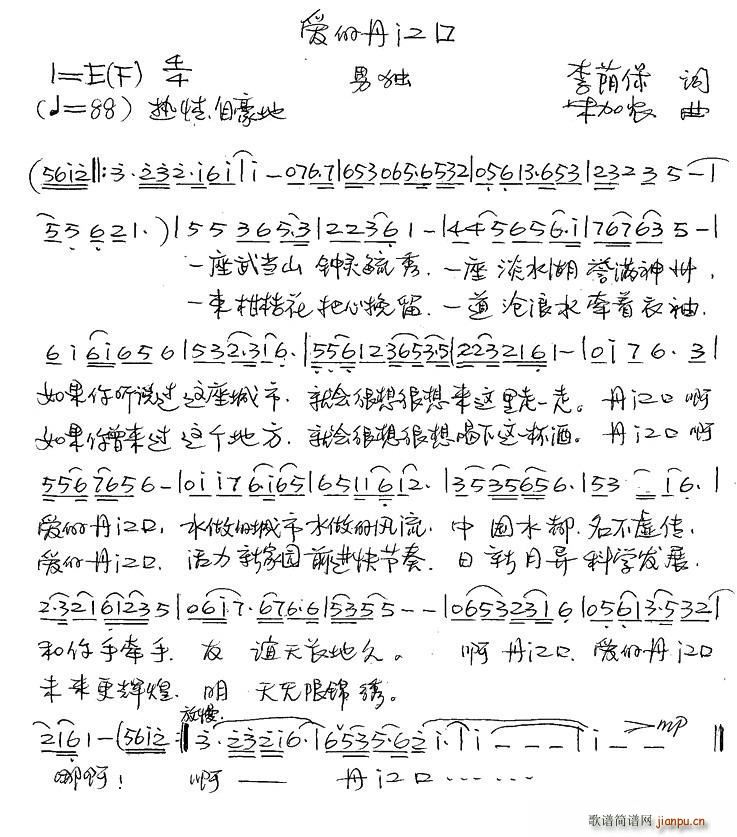 爱的丹江口
1=E(F) 4/4 男独 李荫保 词
(♩=88) 热情.自豪地 加农 曲
(56i2‖:3·232·i6i|i-076·7|653065·6532|05613·653|232 3 5-|
55621·)|553653·3|223 6 1-|4456565·i|767635-|
一座武当山 钟灵毓秀. 一座 淡水湖 誉满神州,
一束柑桔花 把心挽留. 一道 沧浪水 牵着衣袖.
6i6i656|5322·316·|5561236535|22232161-|0i76·3|
如果你听说过这座城市. 就会很想很想来这里走一走。丹江口 啊
如果你曾来过 这个地方. 就会很想很想喝下这杯酒。丹江口 啊
5567656-|0ii76i65|6511612·|35356656·|53 i6·|
爱的丹江口, 水做的城市水做的风流, 中国水都.名不虚传,
爱的丹江口, 活力新家园 前进快节奏. 日新月异 科学发展.
2·321612 3 5|06i7·676·6|5355--|06532316|05613·532|
和你手牵手. 友谊天长地久。 啊 丹江口. 爱的丹江口
未来更辉煌. 明天无限锦绣。
放慢.
2161-(56i2:‖3·232i6·|6535·62i·|i---|i--‖ mp
哪啊! 啊—— 丹江口……
歌谱简谱网 jianpu.cn